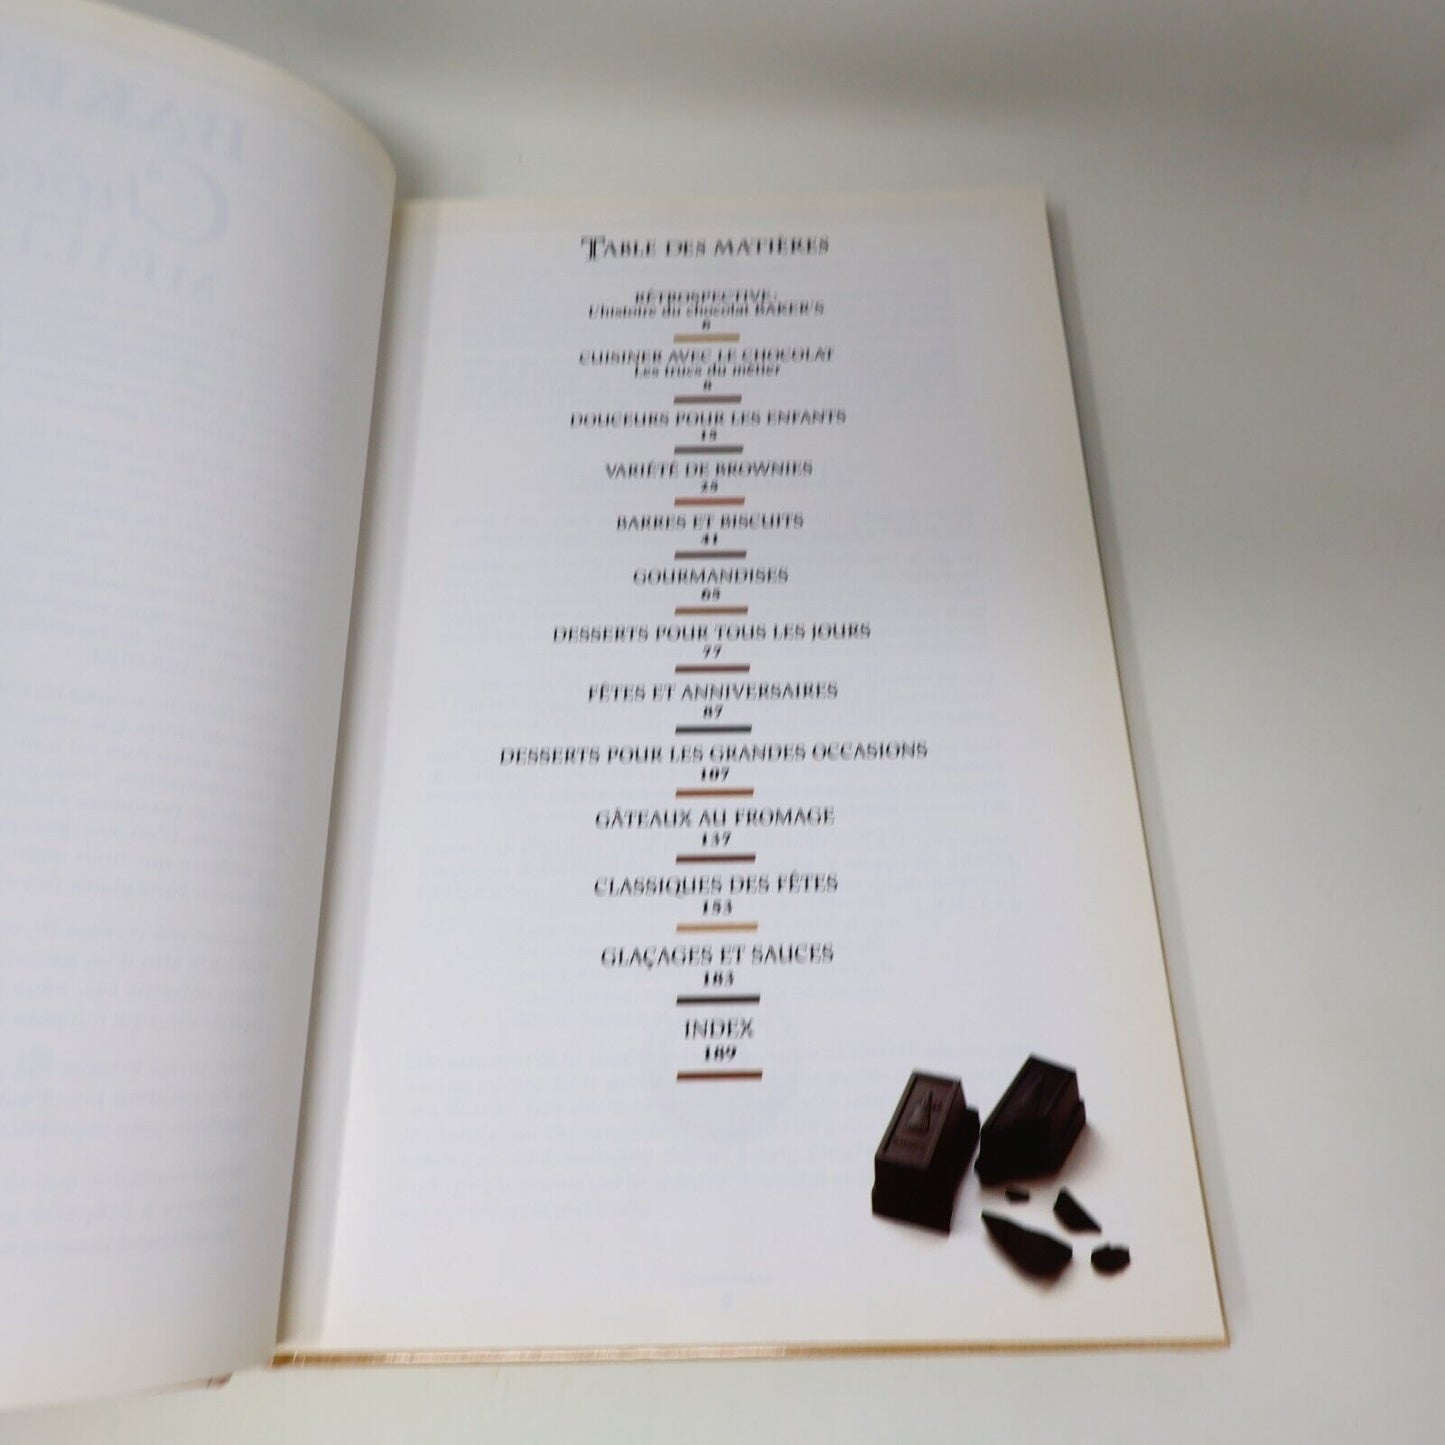 TABLE DES MATIÈRES
RÉTROSPECTIVE,
L'histoire du chocolat BAKER'S
6
CUISINER AVEC LE CHOCOLAT
Les trucs du métier
8
DOUCEURS POUR LES ENFANTS
15
VARIÉTÉ DE BROWNIES
25
BARRES ET BISCUITS
41
GOURMANDISES
65
DESSERTS POUR TOUS LES JOURS
77
FÊTES ET ANNIVERSAIRES
87
DESSERTS POUR LES GRANDES OCCASIONS
107
GÂTEAUX AU FROMAGE
137
CLASSIQUES DES FÊTES
153
GLAÇAGES ET SAUCES
183
INDEX
189